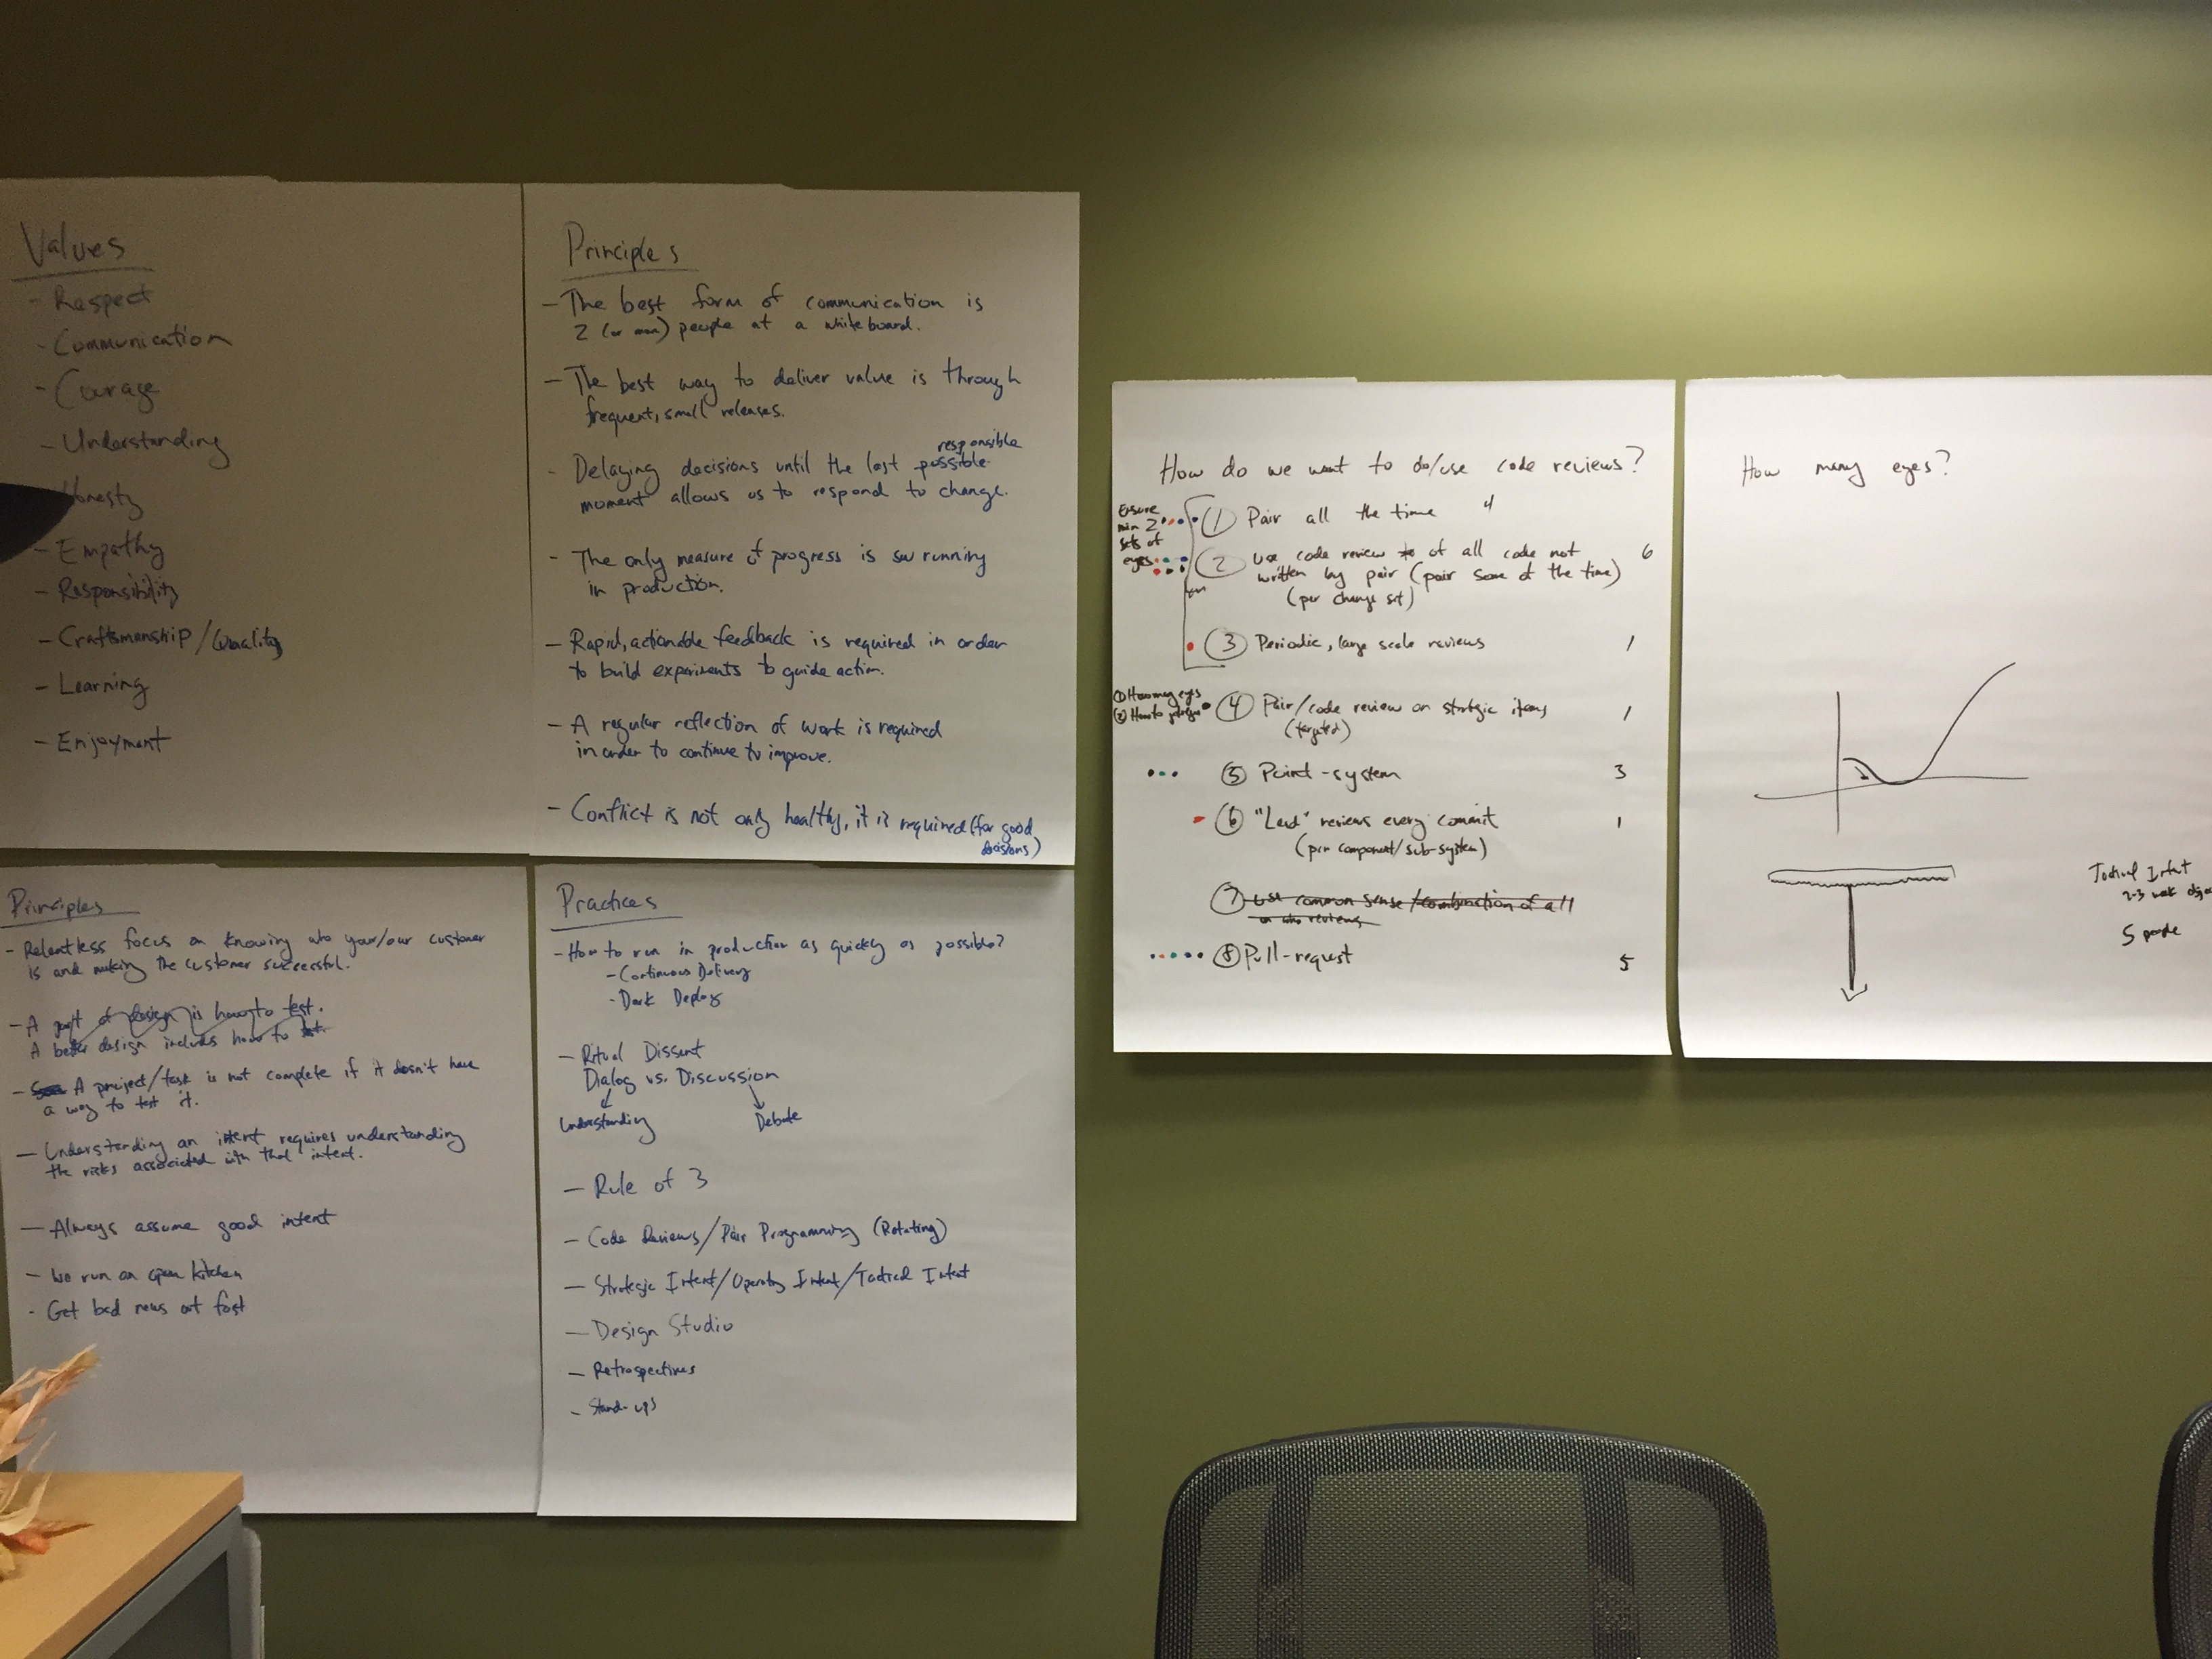 Values
- Respect
- Communication
- Courage
- Understanding
Honesty
- Empathy
- Responsibility
- Craftsmanship/Quality
- Learning
- Enjoyment
Principles
- The best form of communication is
2 (or more) people at a whiteboard.
- The best way to deliver value is through
frequent, small releases.
responsible
- Delaying decisions until the last possible
moment allows us to respond to change.
- The only measure of progress is sw running
in production.
- Rapid, actionable feedback is required in order
to build experiments to guide action.
- A regular reflection of work is required
in order to continue to improve.
- Conflict is not only healthy, it is required (for good
decisions)
Principles
- Relentless focus on knowing who your/our customer
is and making the customer successful.
- A part of design is how to test.
A better design includes how to test.
- A project/task is not complete if it doesn't have
a way to test it.
- Understanding an intent requires understanding
the risks associated with that intent.
- Always assume good intent
- We run an open kitchen
- Get bad news out fast
Practices
- How to run in production as quickly as possible?
- Continuous Delivery
- Dark Deploy
- Ritual Dissent
Dialog vs. Discussion
Understanding Debate
- Rule of 3
- Code Reviews/Pair Programming (Rotating)
- Strategic Intent/Operating Intent/Tactical Intent
- Design Studio
- Retrospectives
- Stand-ups
How do we want to do/use code reviews?
Ensure
min 2
sets of
eyes
1 Pair all the time 4
2 Use code review of all code not 6
written by pair (pair some of the time)
(per change set)
3 Periodic, large scale reviews 1
① How many eyes
② How to
4 Pair/code review on strategic items 1
(targeted)
5 Point-system 3
6 "Lead" reviews every commit 1
(per component/sub-system)
7 Use common sense/combination of all
on who reviews
8 Pull-request 5
How many eyes?
Tactical Intent
2-3 week
5 people